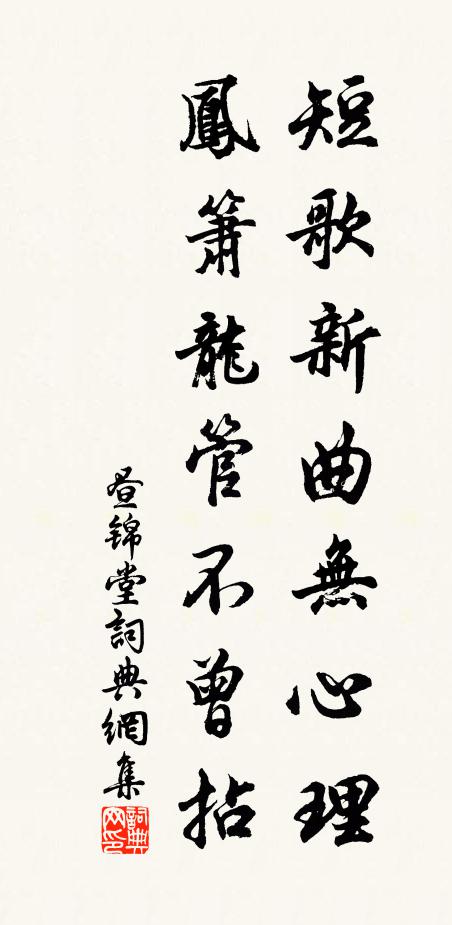 短歌新曲無心理
鳳簫龍管不曾拈
昼锦堂詞典網集
詞典网印